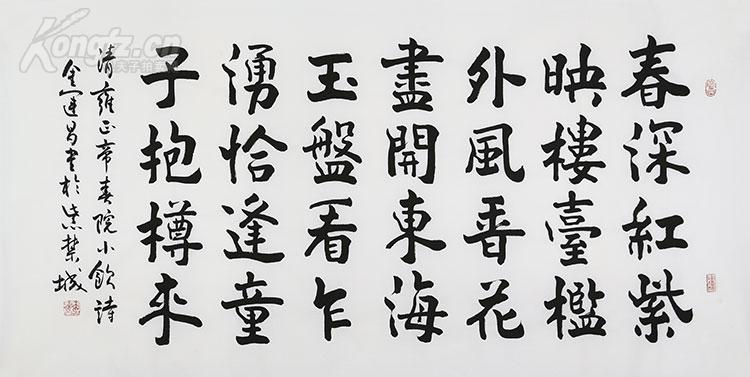 春深紅紫
映樓臺檻
外風晋花
盡開東海
玉盤看乍
湧恰逢童
子抱樽来
清雍正帝春院小飲詩
金運昌书於紫禁城